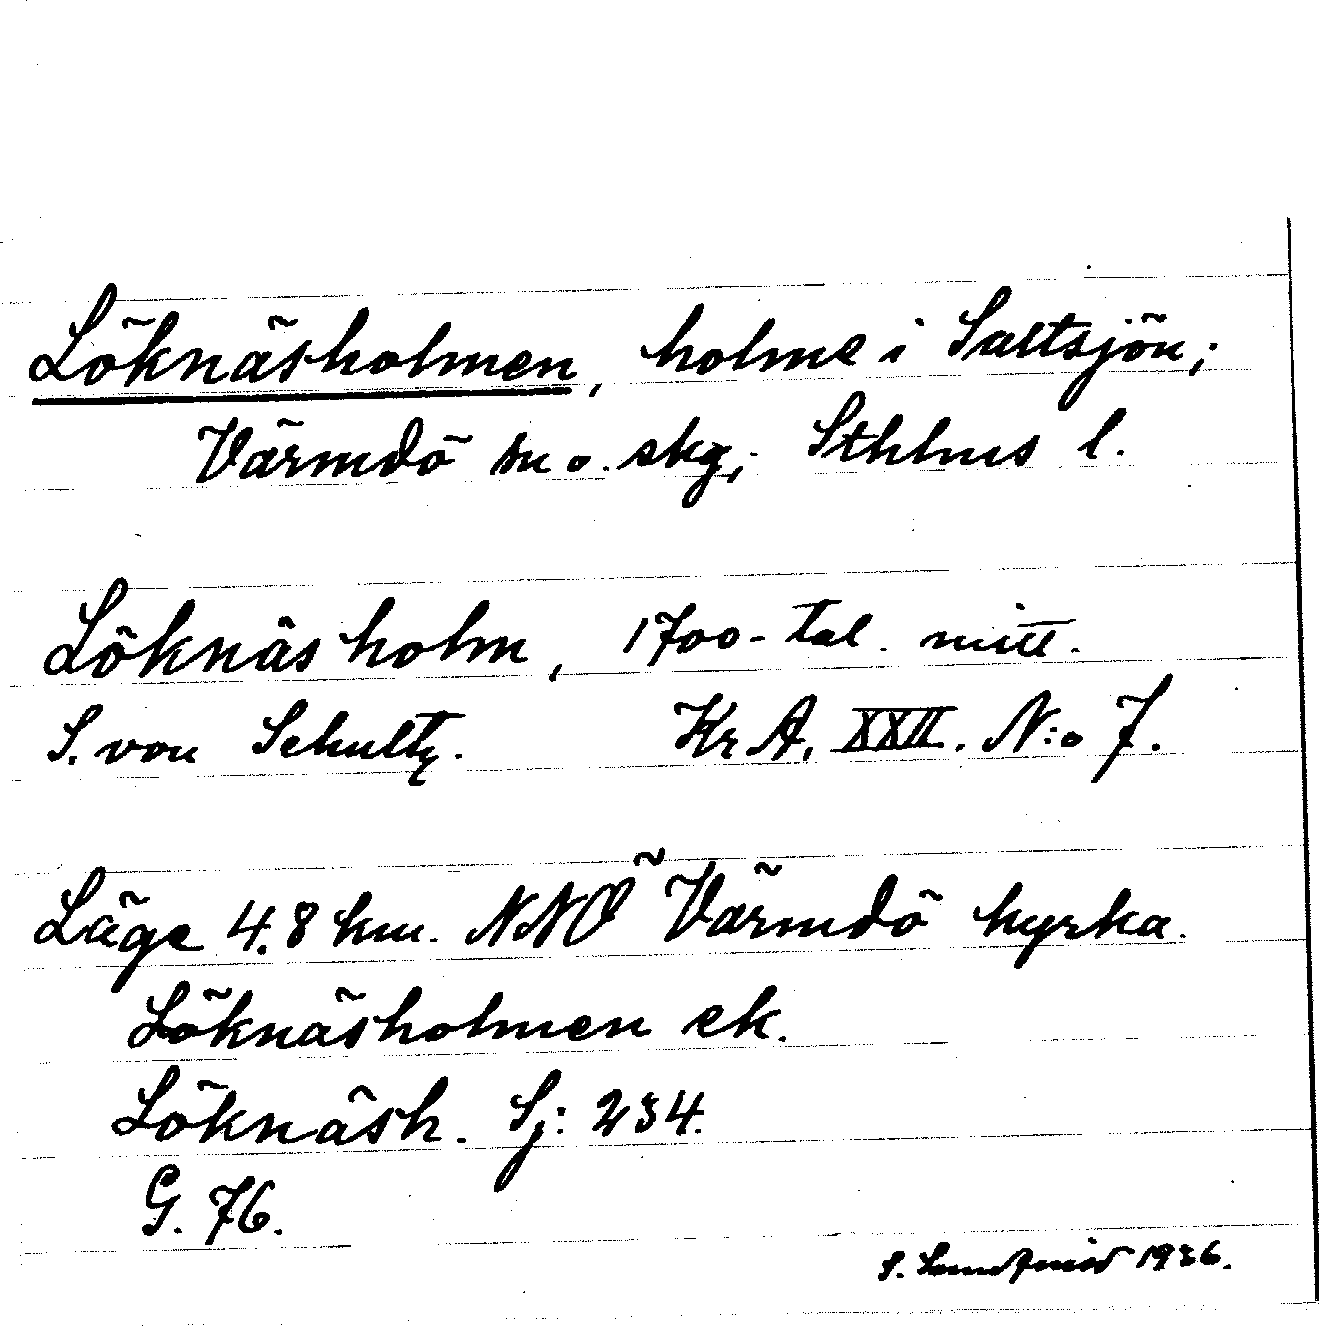 Löknäsholmen, holme i Saltsjön;
Värmdö sn o. skg, Sthlms l.
Löknäsholm, 1700-tal. mitt.
S. von Schultz. Kr A, XXII. N:o 7.
Läge 4.8 km. NNÖ Värmdö kyrka.
Löknäsholmen ek.
Löknäsh. Sj: 234.
G. 76.
S. 1936.